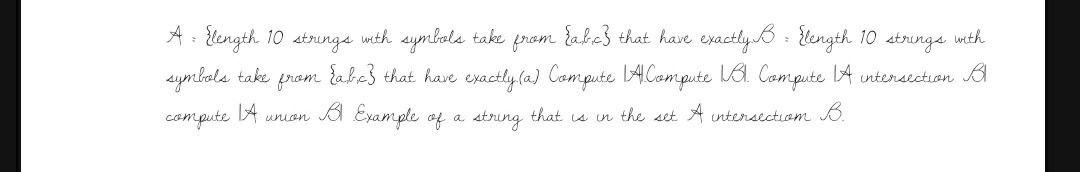 A = {length 10 strings with symbols take from {a,b,c} that have exactly B = {length 10 strings with
symbols take from {a,b,c} that have exactly (a) Compute |A|Compute |B|. Compute |A intersection B|
compute |A union B| Example of a string that is in the set A intersectiom B.